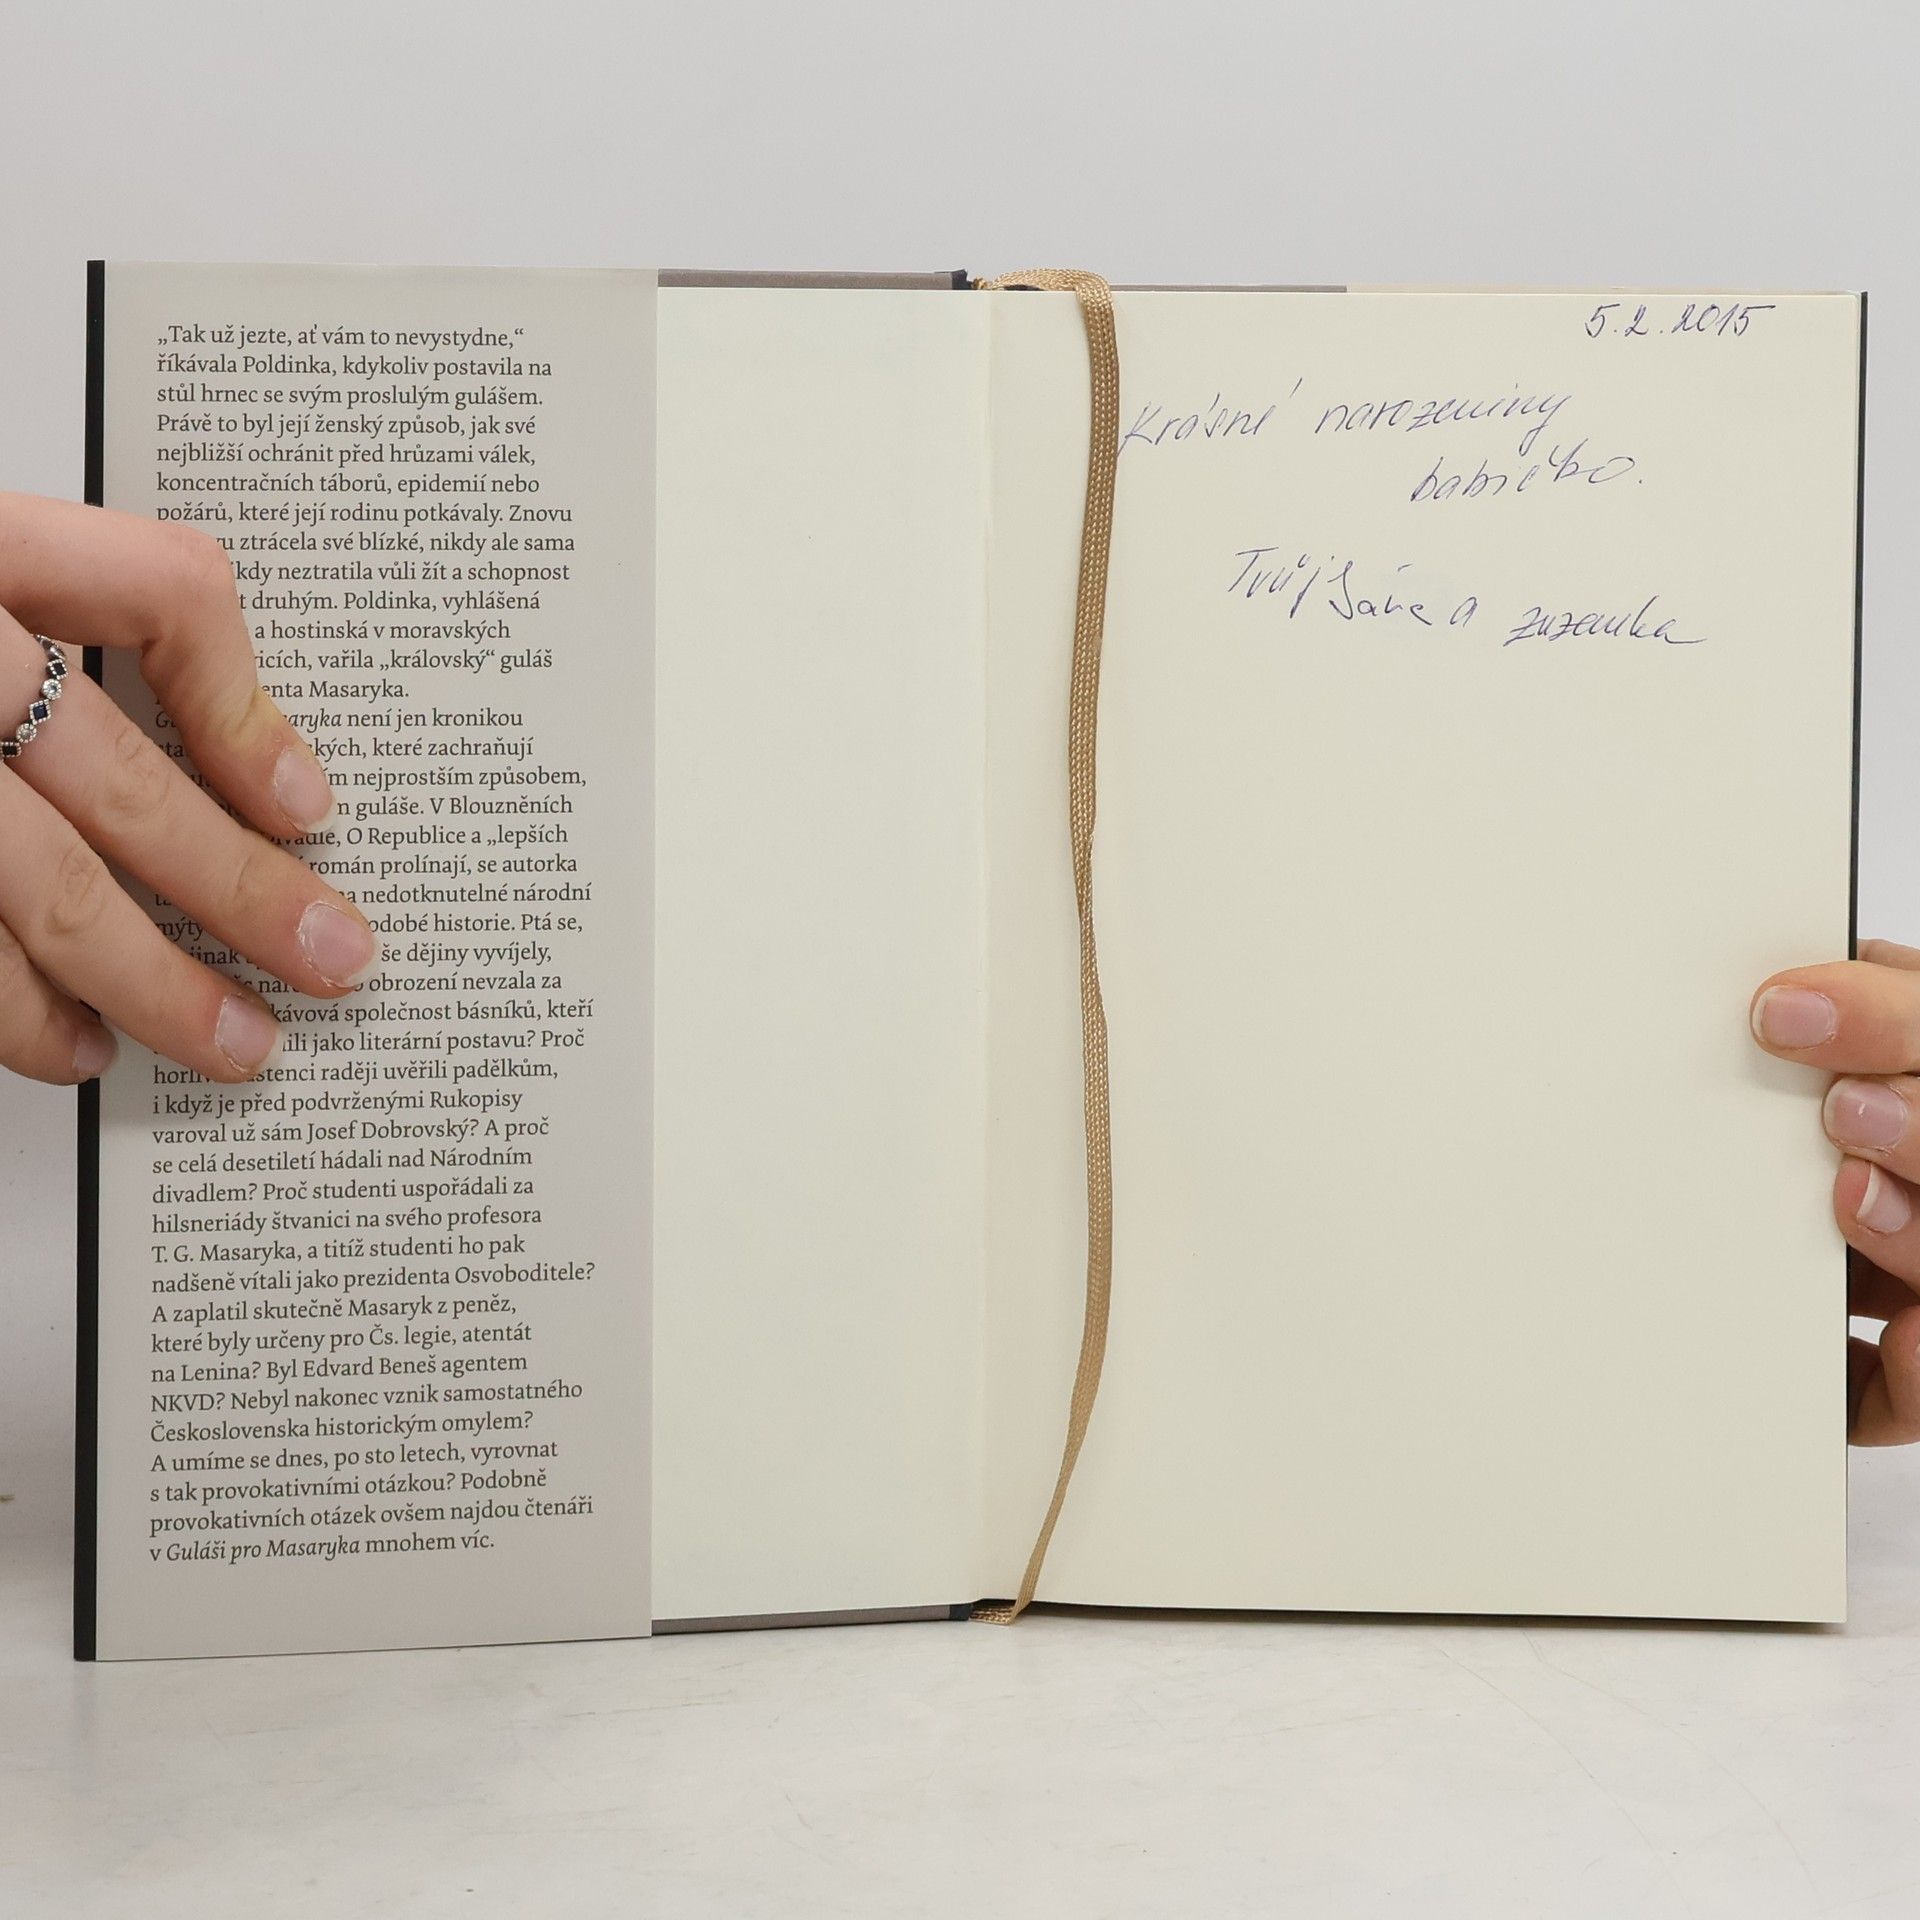 „Tak už jezte, ať vám to nevystydne,“
říkávala Poldinka, kdykoliv postavila na
stůl hrnec se svým proslulým gulášem.
Právě to byl její ženský způsob, jak své
nejbližší ochránit před hrůzami válek,
koncentračních táborů, epidemií nebo
požárů, které její rodinu potkávaly. Znovu
ztrácela své blízké, nikdy ale sama
neztratila vůli žít a schopnost
druhým. Poldinka, vyhlášená
a hostinská v moravských
vařila „královský“ guláš
Masaryka.
není jen kronikou
které zachraňují
nejprostším způsobem,
guláše. V Blouzněních
O Republice a „lepších
román prolínají, se autorka
nedotknutelné národní
mýty historie. Ptá se,
dějiny vyvíjely,
obrození nevzala za
společnost básníků, kteří
jako literární postavu? Proč
raději uvěřili padělkům,
i když je před podvrženými Rukopisy
varoval už sám Josef Dobrovský? A proč
se celá desetiletí hádali nad Národním
divadlem? Proč studenti uspořádali za
hilsneriády štvanici na svého profesora
T. G. Masaryka, a titíž studenti ho pak
nadšeně vítali jako prezidenta Osvoboditele?
A zaplatil skutečně Masaryk z peněz,
které byly určeny pro Čs. legie, atentát
na Lenina? Byl Edvard Beneš agentem
NKVD? Nebyl nakonec vznik samostatného
Československa historickým omylem?
A umíme se dnes, po sto letech, vyrovnat
s tak provokativními otázkou? Podobně
provokativních otázek ovšem najdou čtenáři
v Guláši pro Masaryka mnohem víc.
5.2.2015
Krásné narozeniny
babičko.
Tvůj a Zuzanka